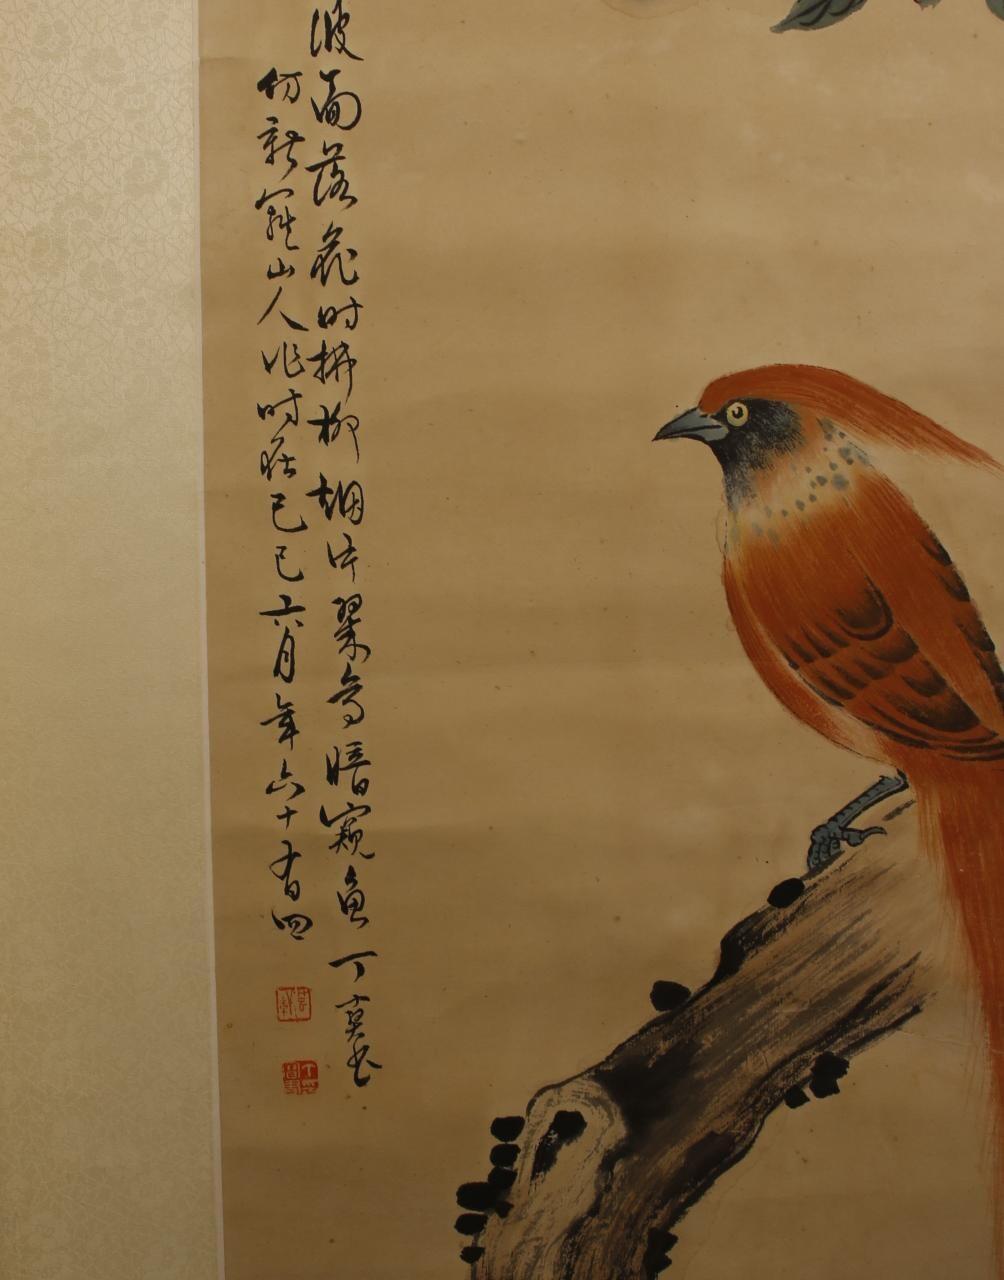 波面落花时拂柳烟汁翠鸟暗窥鱼 丁寅书
仿新罗山人作时在己巳六月年六十有四